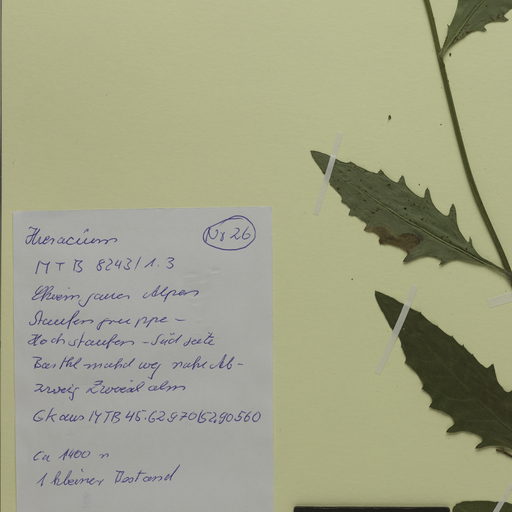 Hieracium
Nr 26
MTB 8243/1.3
Chiemgauer Alpen
Staufengruppe -
Hochstaufen - Südseite
Barthlmahd weg nahe Ab-
zweig Zwieselalm
GK aus MTB 45.62970/52.90560
ca 1400 m
1 kleiner Bestand